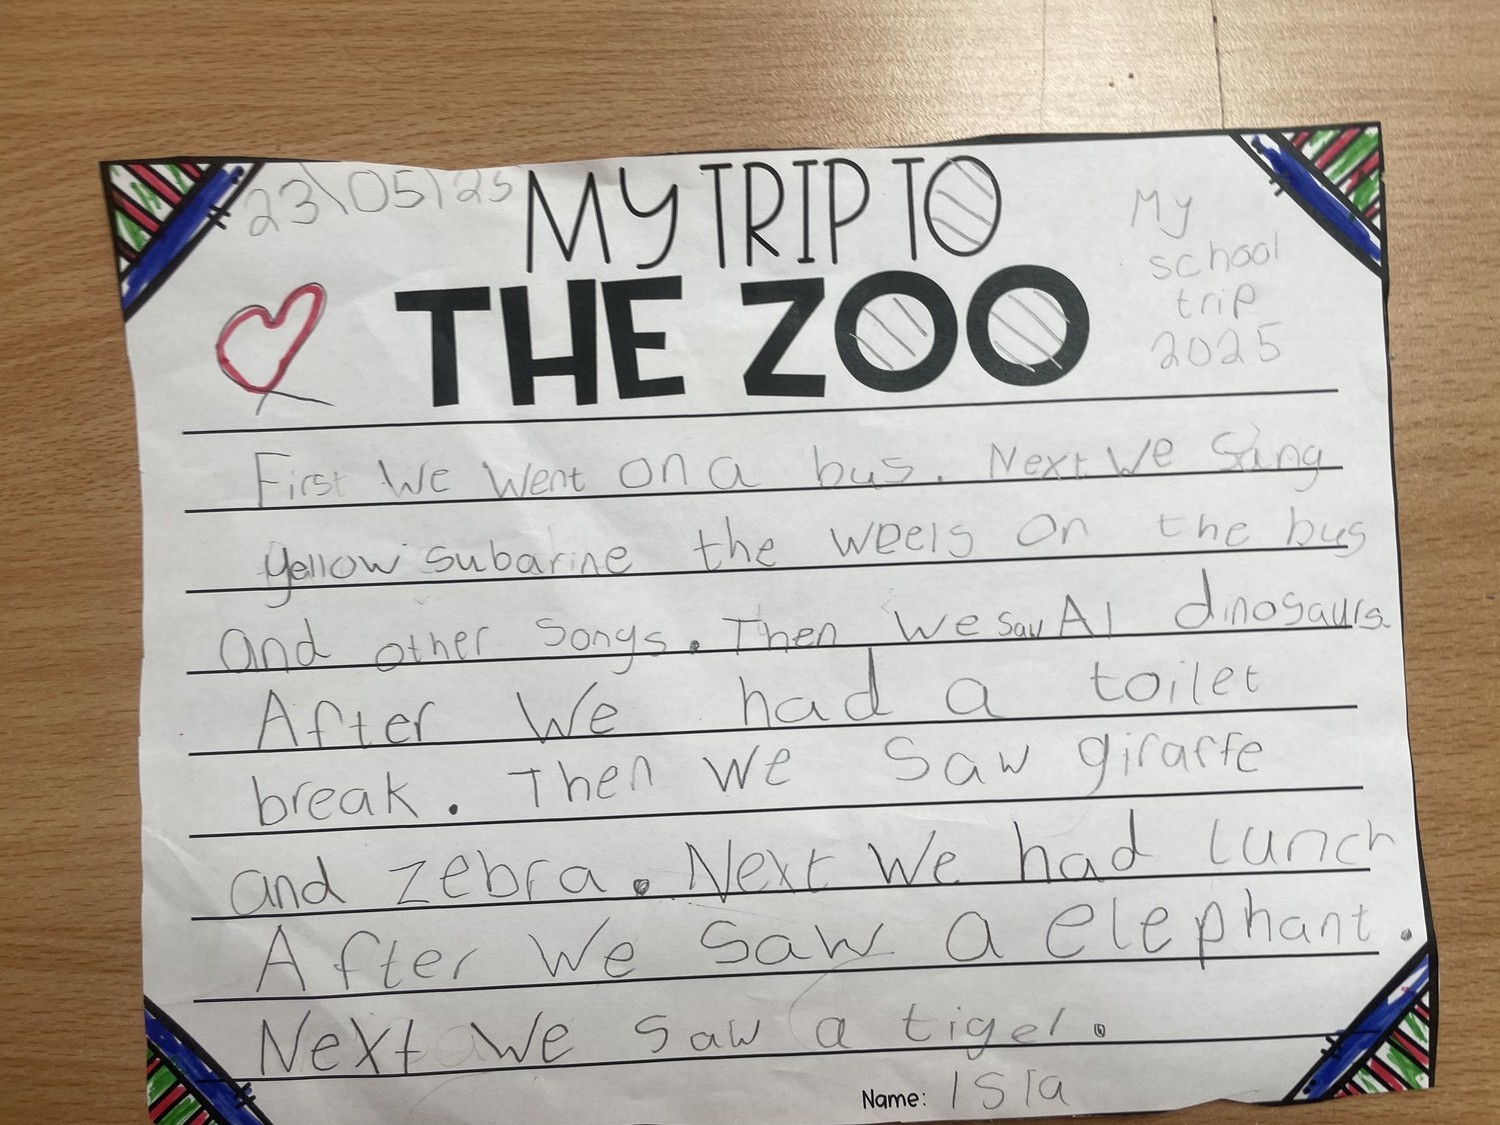 23\05\25
MY TRIP TO
THE ZOO
My
school
trip
2025
First We Went on a bus. Next We Sang
yellow subarine the weels on the bus
and other songs. Then We saw Al dinosaurs.
After We had a toilet
break. Then we saw giraffe
and zebra. Next We had lunch
After We saw a elephant.
Next We saw a tiger.
Name: Isla